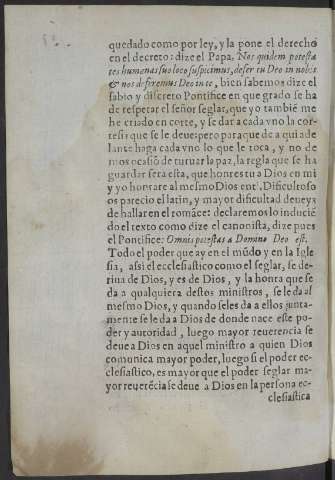 quedado como por ley, y la pone el derecho
en el decreto: dize el Papa, Nos quidem potesta
tes humanas suo loco suspicimus, defer tu Deo in nobis
& nos deferemus Deo in te, bien sabemos dize el
sabio y discreto Pontifice en que grado se ha
de respetar el señor seglar, que yo tambié me
he criado en corte, y se dar a cada vno la cor-
tesia que se le deue: pero para que de aqui ade
lante haga cada vno lo que le toca, y no de
mos ocasió de turuar la paz, la regla que se ha
guardar sera esta, que honres tu a Dios en mi
y yo honrare al mesmo Dios en ti. Dificultoso
os parecio el latin, y mayor dificultad deue
de hallar en el romãce: declaremoslo induciẽ
do el texto como dize el canonista, dize pues
el Pontifice: Omnis potestas a Domino Deo est.
Todo el poder que ay en el mũdo y en la Igle
sia, asi el ecclesiastico como el seglar, se de-
riua de Dios, y es de Dios, y la honra que se
da a qualquiera destos ministros, se le da al
mesmo Dios, y quando seles da a ellos junta-
mente se le da a Dios de donde nace este po-
der y autoridad, luego mayor reuerencia se
deue a Dios en aquel ministro a quien Dios
comunica mayor poder, luego si el poder ec-
clesiastico, es mayor que el poder seglar ma-
yor reuerẽcia se deue a Dios en la persona ec-
clesiastica